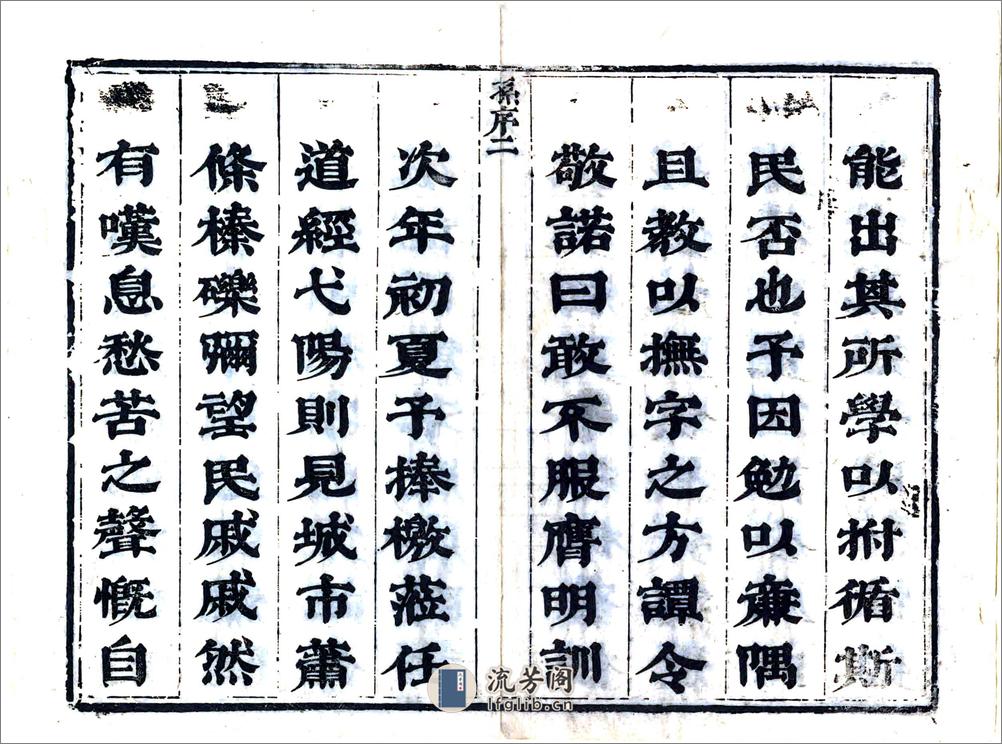 能出其所學以拊循斯
民否也予因勉以廉隅
且教以撫字之方譚令
敬諾曰敢不服膺明訓
孫序二
次年初夏予捧檄蒞任
道經弋陽則見城市蕭
條榛礫彌望民戚戚然
有嘆息愁苦之聲慨自
流芳阁
lfglib.cn